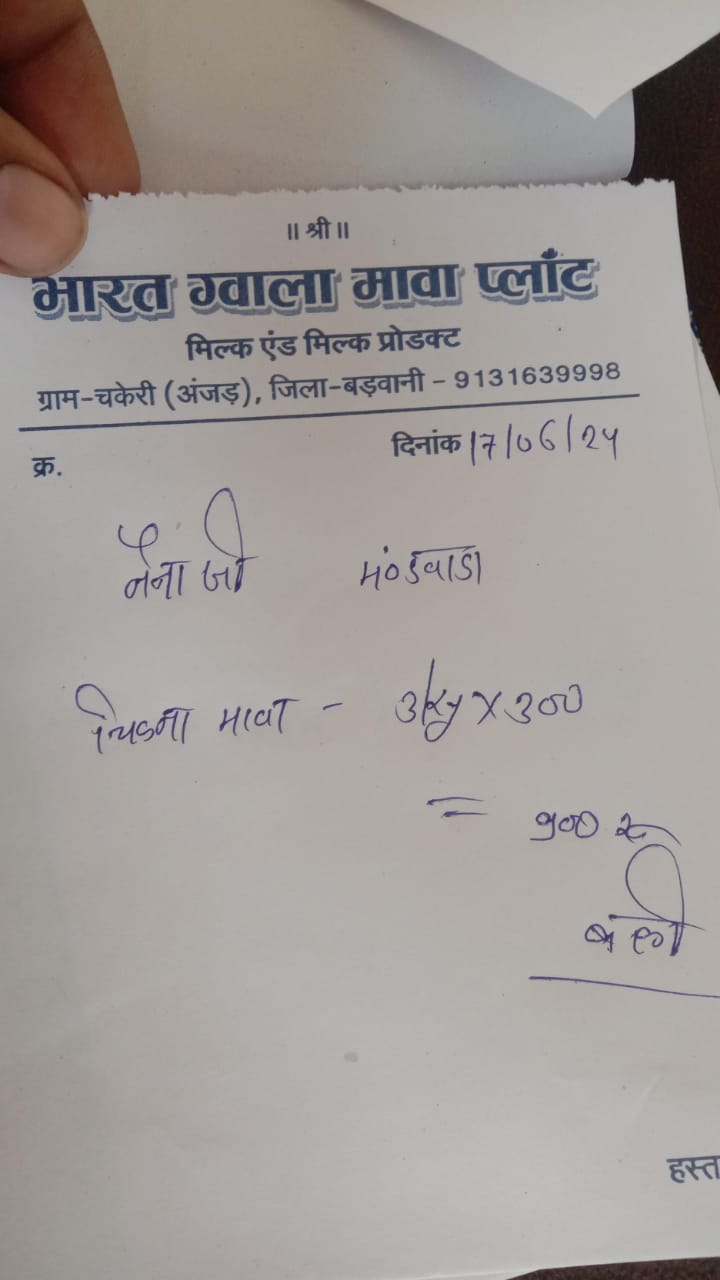 ॥ श्री ॥
भारत ग्वाला मावा प्लाँट
मिल्क एंड मिल्क प्रोडक्ट
ग्राम-चकेरी (अंजड़), जिला-बड़वानी - 9131639998
क्र. दिनांक 17/06/24
नैना जी मंडवाडा
चिकना मावा - 3kg x 300
= 900 रु
हस्त